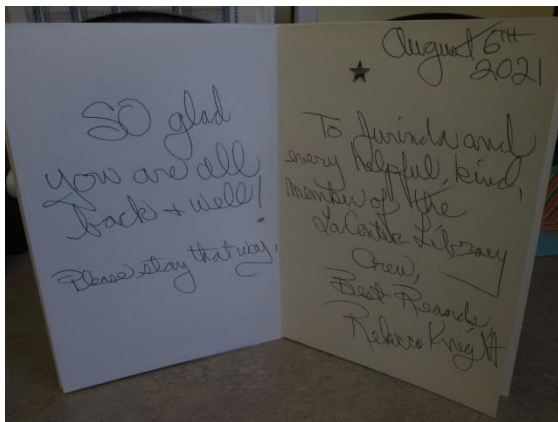 SO glad
you are all
back + well!
Please stay that way.
August 6TH
2021
To Jurinda and
every helpful, kind,
member of the
LaCenter Library
Crew,
Best Regards,
Rebecca Knight